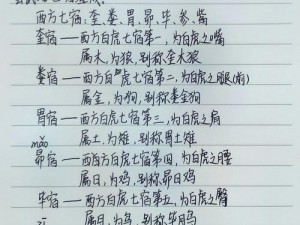 西方七宿：奎、娄、胃、昴、毕、参、觜
奎宿——西方白虎七宿第一，为白虎之嘴
属木，为狼，别称奎木狼
娄宿——西方白虎七宿第二，为白虎之眼
属金，为狗，别称娄金狗
胃宿——西方白虎七宿第三，为白虎之肩
属土，为雉，别称胃土雉
mǎo
昴宿——西方白虎七宿第四，为白虎之腰
属日，为鸡，别称昴日鸡
毕宿——西方白虎七宿第五，为白虎之臀
属月，为乌，别称毕月乌